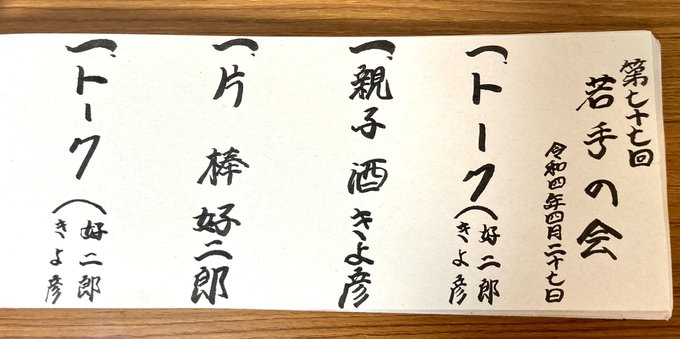 第七十七回
若手の会
令和四年四月二十七日
一、トーク(好二郎
きよ彦
一、親子酒 きよ彦
一、片棒 好二郎
一、トーク(好二郎
きよ彦